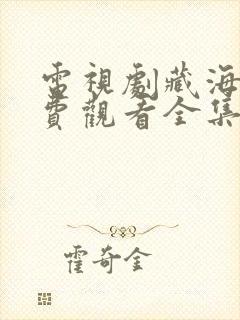 電視劇藏海
費觀看全集
霍奇金